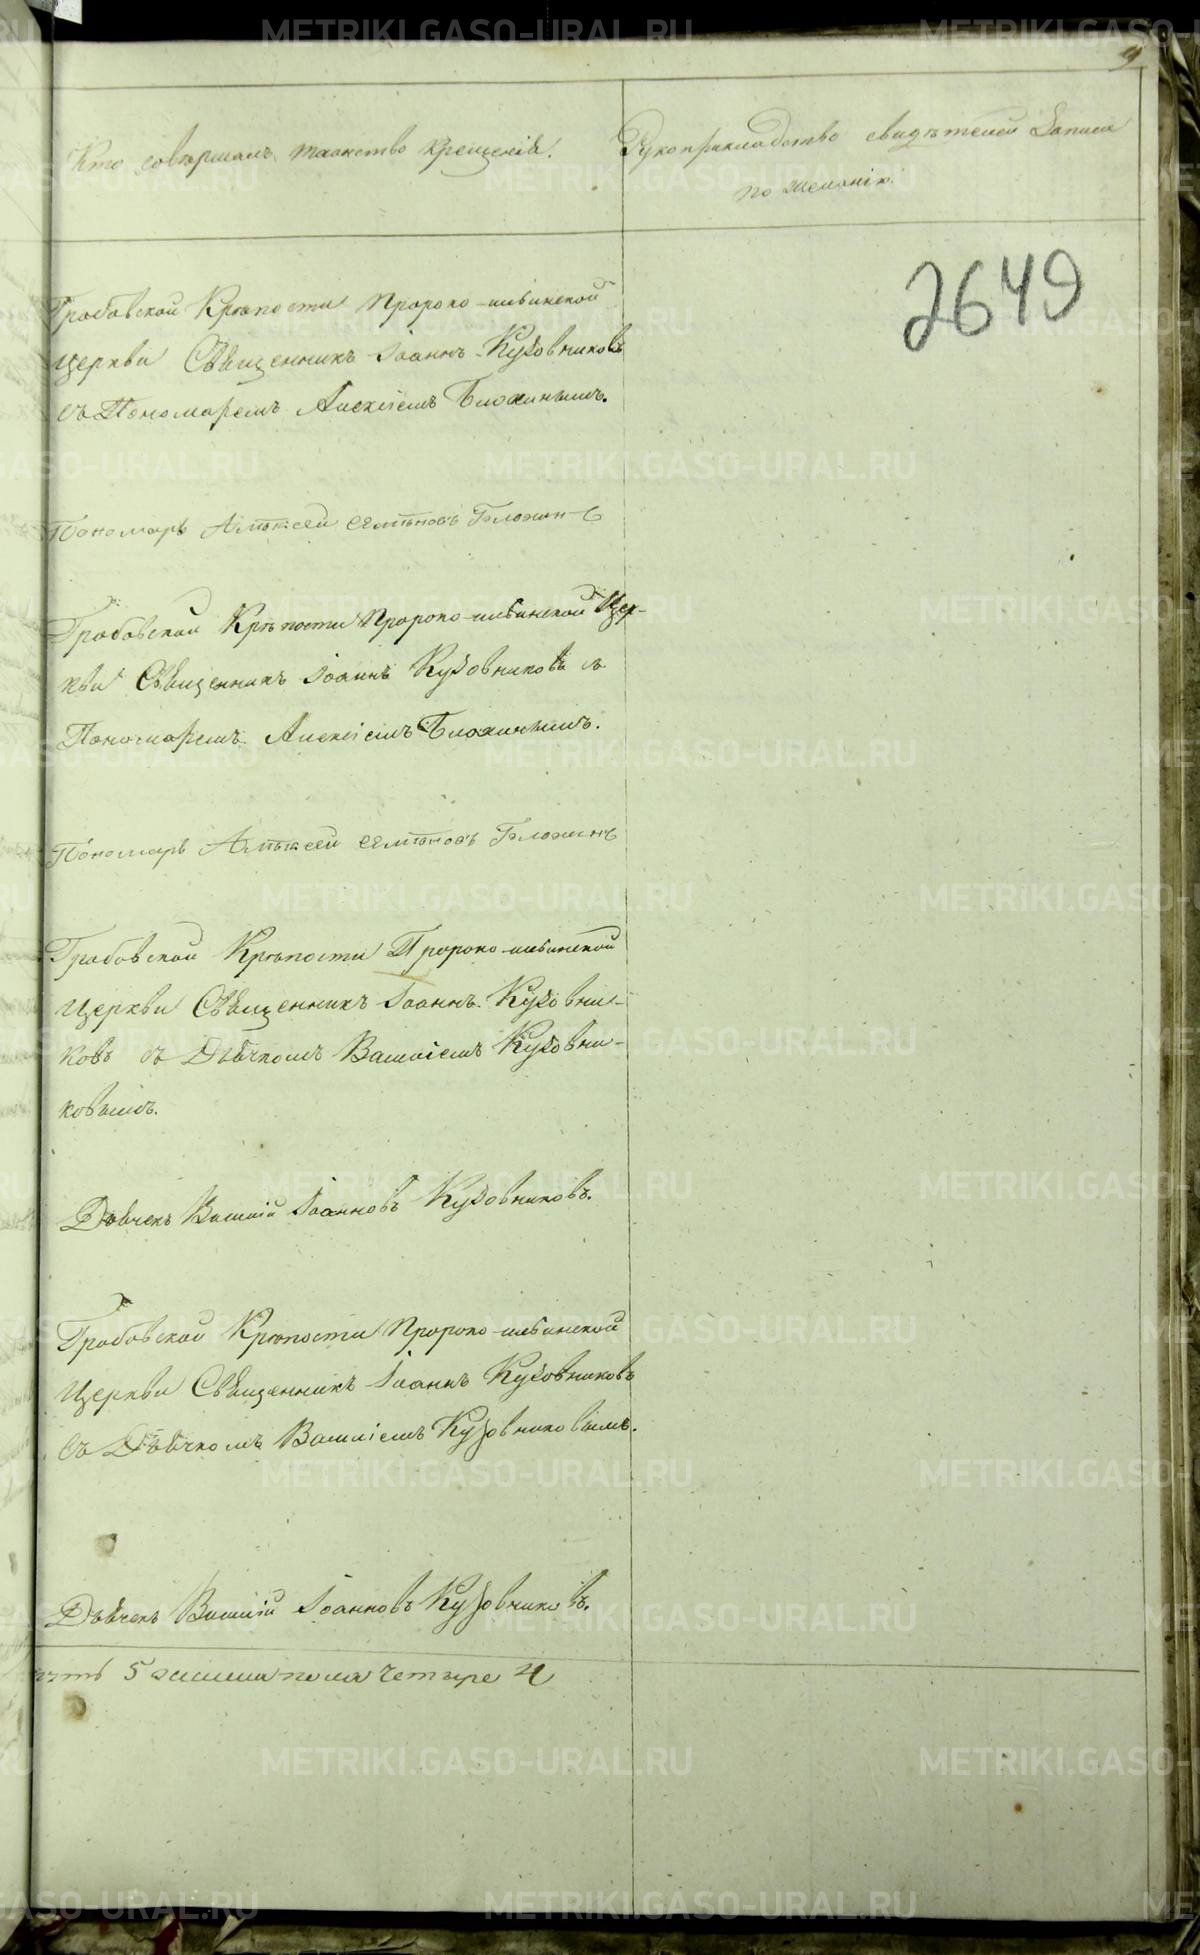 9
Кто совершалъ таинство крещенія.
Рукоприкладство свидѣтелей записи
по желанію.
2649
Грабовской Крѣпости Пророко-ильинской
церкви Священникъ Іоаннъ Кузовниковъ
съ Пономаремъ Алексіемъ Блохинымъ.
Пономарь Алѣксей семѣновъ Блохинъ
Грабовской Крѣпости Пророко-ильинской Цер-
кви Священникъ Іоаннъ Кузовниковъ съ
Пономаремъ Алексіемъ Блохинымъ.
Пономарь Алѣксей семѣновъ Блохинъ
Грабовской Крѣпости Пророко-ильинской
Церкви Священникъ Іоаннъ Кузовни-
ковъ съ Дьячкомъ Василіемъ Кузовни-
ковымъ.
Дьячекъ Василій Іоанновъ Кузовниковъ.
Грабовской Крѣпости Пророко-ильинской
Церкви Священникъ Іоаннъ Кузовниковъ
съ Дьячкомъ Василіемъ Кузовниковымъ.
Дьячекъ Василій Іоанновъ Кузовниковъ.
5 женска пола четыре 4
METRIKI.GASO-URAL.RU